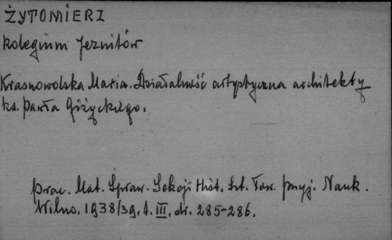 ŻYTOMIERZ
kolegium Jezuitów
Krasnowolska Maria. Działalność artystyczna architekty
ks. Pawła Giżyckiego.
Prac. Mat. Spraw. Sekcji Hist. Szt. Tow. Przyj. Nauk.
Wilno. 1938/39, t. III, str. 285-286.